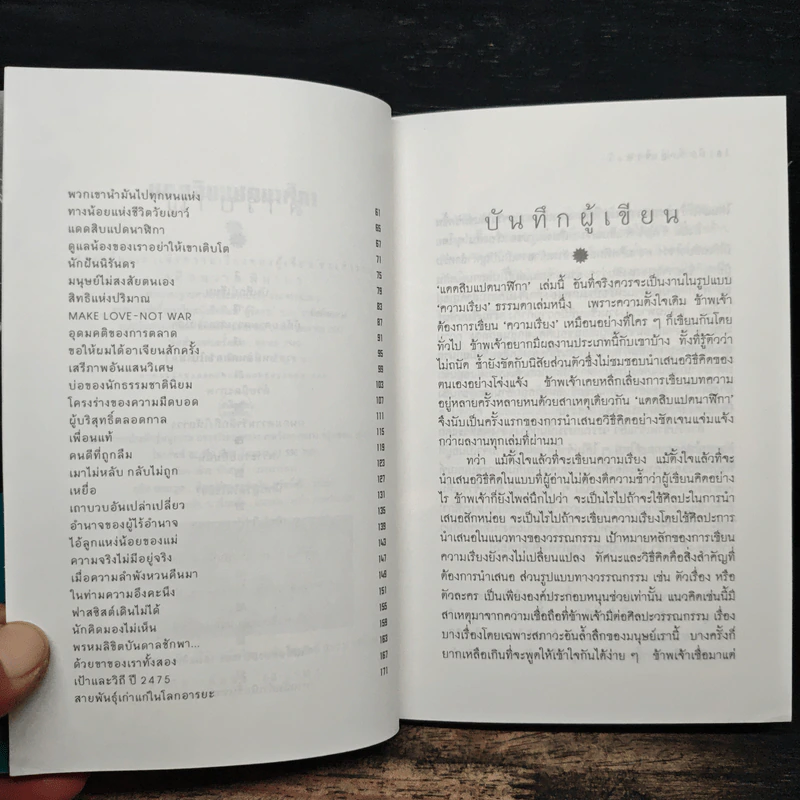 พวกเขานำมันไปทุกหนแห่ง
ทางน้อยแห่งชีวิตวัยเยาว์ 61
แดดสิบแปดนาฬิกา 65
ดูแลน้องของเราอย่าให้เขาเติบโต 67
นักฝันนิรันดร 71
มนุษย์ไม่สงสัยตนเอง 75
สิทธิแห่งปริมาณ 79
MAKE LOVE-NOT WAR 83
อุดมคติของการตลาด 87
ขอให้ผมได้อาเจียนสักครั้ง 91
เสรีภาพอันแสนวิเศษ 95
บ่อของนักธรรมชาตินิยม 99
โครงร่างของความมืดบอด 103
ผู้บริสุทธิ์ตลอดกาล 107
เพื่อนแท้ 111
คนดีที่ถูกลืม 115
เมาไม่หลับ กลับไม่ถูก 119
เหยื่อ 123
เถาบวบอันเปล่าเปลี่ยว 127
อำนาจของผู้ไร้อำนาจ 131
ไอ้ลูกแหง่น้อยของแม่ 135
ความจริงไม่มีอยู่จริง 139
เมื่อความลำพังหวนคืนมา 143
ในท่ามความอึงคะนึง 145
ฟาสซิสต์เดินไม่ได้ 151
นักคิดมองไม่เห็น 155
พรหมลิขิตบันดาลชักพา... 159
ด้วยขาของเราทั้งสอง 163
เป้าและวิถี ปี 2475 167
สายพันธุ์เก่าแก่ในโลกอารยะ 171
บันทึกผู้เขียน
'แดดสิบแปดนาฬิกา' เล่มนี้ อันที่จริงควรจะเป็นงานในรูปแบบ
'ความเรียง' ธรรมดาเล่มหนึ่ง เพราะความตั้งใจเดิม ข้าพเจ้า
ต้องการเขียน 'ความเรียง' เหมือนอย่างที่ใคร ๆ ก็เขียนกันโดย
ทั่วไป ข้าพเจ้าอยากมีผลงานประเภทนี้กับเขาบ้าง ทั้งที่รู้ตัวว่า
ไม่ถนัด ซ้ำยังขัดกับนิสัยส่วนตัวซึ่งไม่ชมชอบนำเสนอวิธีคิดของ
ตนเองอย่างโจ่งแจ้ง ข้าพเจ้าเคยหลีกเลี่ยงการเขียนบทความ
อยู่หลายครั้งหลายหนด้วยสาเหตุเดียวกัน 'แดดสิบแปดนาฬิกา'
จึงนับเป็นครั้งแรกของการนำเสนอวิธีคิดอย่างชัดเจนแจ่มแจ้ง
กว่าผลงานทุกเล่มที่ผ่านมา
ทว่า แม้ตั้งใจแล้วที่จะเขียนความเรียง แม้ตั้งใจแล้วที่จะ
นำเสนอวิธีคิดในแบบที่ผู้อ่านไม่ต้องตีความซ้ำว่าผู้เขียนคิดอย่าง
ไร ข้าพเจ้าก็ยังไพล่นึกไปว่า จะเป็นไรไปถ้าจะใช้ศิลปะในการนำ
เสนอสักหน่อย จะเป็นไรไปถ้าจะเขียนความเรียงโดยใช้ศิลปะการ
นำเสนอในแนวทางของวรรณกรรม เป้าหมายหลักของการเขียน
ความเรียงยังคงไม่เปลี่ยนแปลง ทัศนะและวิธีคิดคือสิ่งสำคัญที่
ต้องการนำเสนอ ส่วนรูปแบบทางวรรณกรรม เช่น ตัวเรื่อง หรือ
ตัวละคร เป็นเพียงองค์ประกอบหนุนช่วยเท่านั้น แนวคิดเช่นนี้มี
สาเหตุมาจากความเชื่อถือที่ข้าพเจ้ามีต่อศิลปะวรรณกรรม เรื่อง
บางเรื่องโดยเฉพาะสภาวะอันล้ำลึกของมนุษย์เรานี้ บางครั้งก็
ยากเหลือเกินที่จะพูดให้เข้าใจกันได้ง่าย ๆ ข้าพเจ้าเชื่อมาแต่